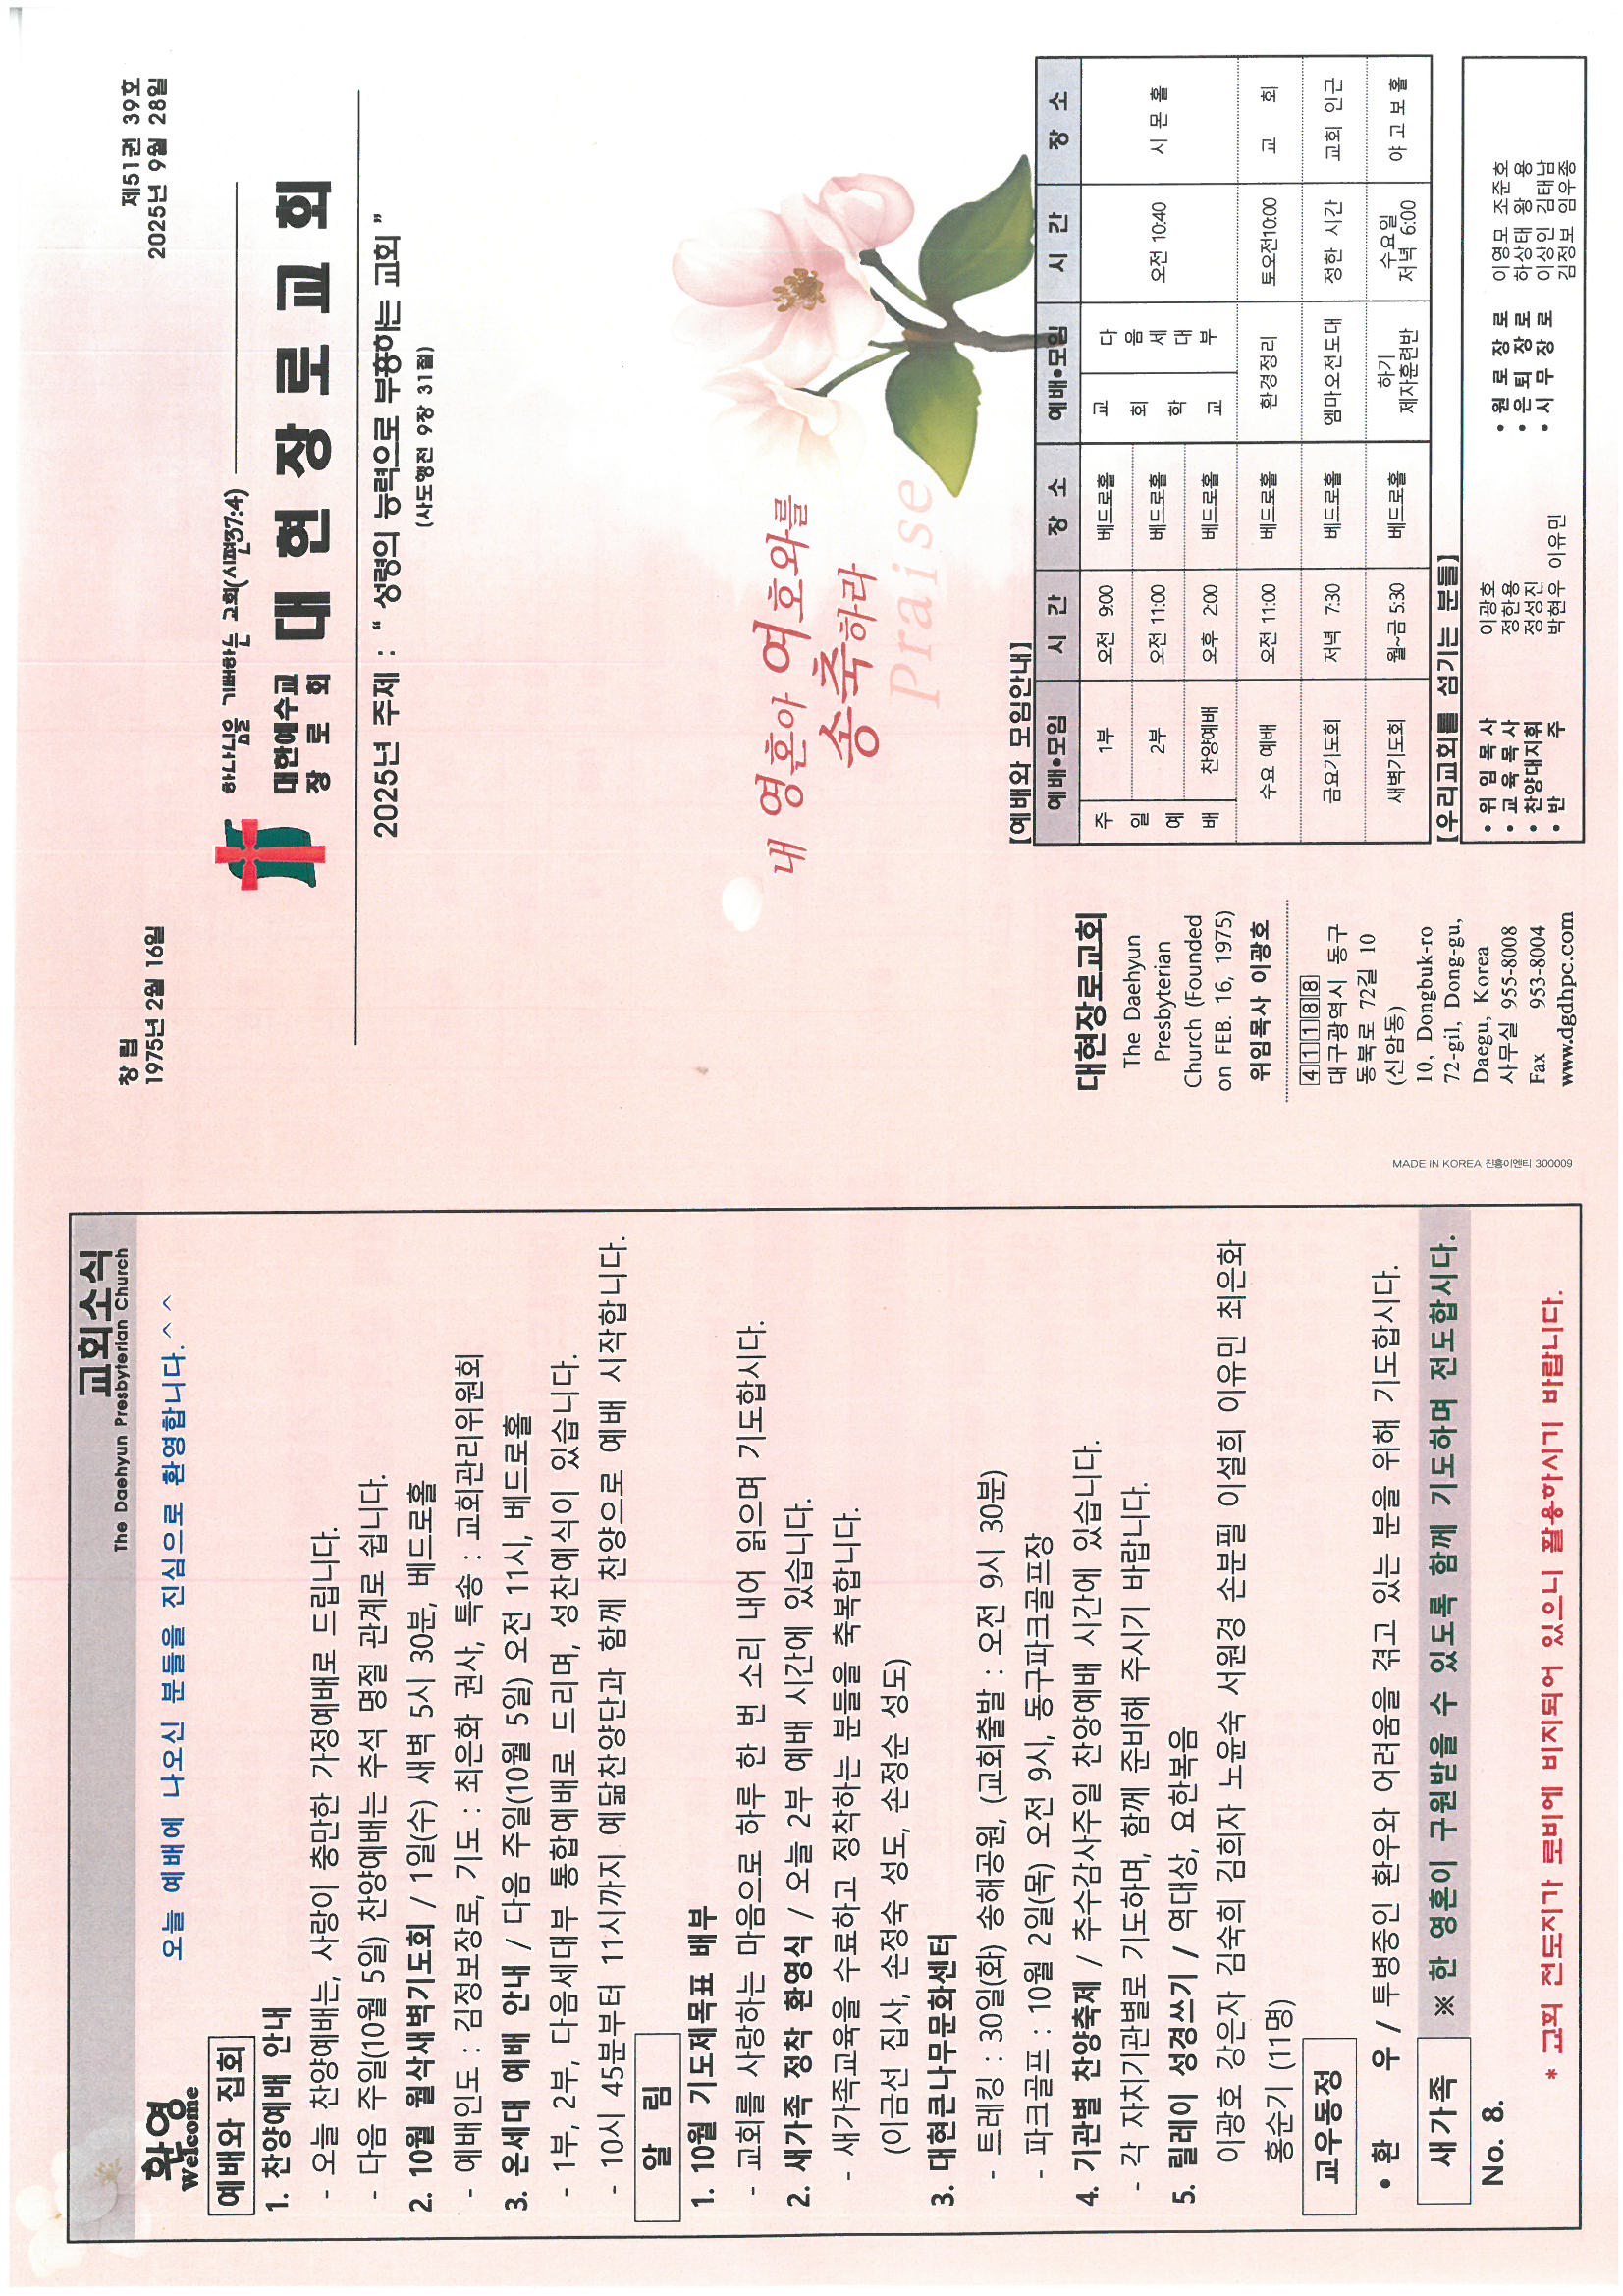 교회소식
The Daehyun Presbyterian Church
환영
Welcome
오늘 예배에 나오신 분들을 진심으로 환영합니다.^^
예배와 집회
1. 찬양예배 안내
- 오늘 찬양예배는, 사랑이 충만한 가정예배로 드립니다.
- 다음 주일(10월 5일) 찬양예배는 추석 명절 관계로 쉽니다.
2. 10월 월삭새벽기도회 / 1일(수) 새벽 5시 30분, 베드로홀
- 예배인도 : 김정보장로, 기도 : 최은화 권사, 특송 : 교회관리위원회
3. 온세대 예배 안내 / 다음 주일(10월 5일) 오전 11시, 베드로홀
- 1부, 2부, 다음세대부 통합예배로 드리며, 성찬예식이 있습니다.
- 10시 45분부터 11시까지 예닮찬양단과 함께 찬양으로 예배 시작합니다.
알 림
1. 10월 기도제목표 배부
- 교회를 사랑하는 마음으로 하루 한 번 소리 내어 읽으며 기도합시다.
2. 새가족 정착 환영식 / 오늘 2부 예배 시간에 있습니다.
- 새가족교육을 수료하고 정착하는 분들을 축복합니다.
(이금선 집사, 손정숙 성도, 손정순 성도)
3. 대현큰나무문화센터
- 트레킹 : 30일(화) 송해공원, (교회출발 : 오전 9시 30분)
- 파크골프 : 10월 2일(목) 오전 9시, 동구파크골프장
4. 기관별 찬양축제 / 추수감사주일 찬양예배 시간에 있습니다.
- 각 자치기관별로 기도하며, 함께 준비해 주시기 바랍니다.
5. 릴레이 성경쓰기 / 역대상, 요한복음
이광호 강은자 김숙희 김희자 노윤숙 서원경 손분필 이설희 이유민 최은화
홍순기 (11명)
교우동정
• 환 우 / 투병중인 환우와 어려움을 겪고 있는 분을 위해 기도합시다.
새가족 ※ 한 영혼이 구원받을 수 있도록 함께 기도하며 전도합시다.
No. 8.
* 교회 전도지가 로비에 비치되어 있으니 활용하시기 바랍니다.
MADE IN KOREA 진흥이엔티 300009
창 립
1975년 2월 16일
제51권 39호
2025년 9월 28일
하나님을 기뻐하는 교회(시편37:4)
대한예수교
장 로 회
대 현 장 로 교 회
2025년 주제 : “ 성령의 능력으로 부흥하는 교회 ”
(사도행전 9장 31절)
내 영혼아 여호와를
송축하라
Praise
대현장로교회
The Daehyun
Presbyterian
Church (Founded
on FEB. 16, 1975)
위임목사 이광호
41188
대구광역시 동구
동북로 72길 10
(신암동)
10, Dongbuk-ro
72-gil, Dong-gu,
Daegu, Korea
사무실 955-8008
Fax 953-8004
www.dgdhpc.com
[예배와 모임안내]
예배•모임 시 간 장 소 예배•모임 시 간 장 소
주일예배 1부 오전 9:00 베드로홀 교회학교 다음세대부 오전 10:40 시 몬 홀
2부 오전 11:00 베드로홀
찬양예배 오후 2:00 베드로홀
수요 예배 오전 11:00 베드로홀 환경정리 토오전10:00 교 회
금요기도회 저녁 7:30 베드로홀 엠마오전도대 정한 시간 교회 인근
새벽기도회 월~금 5:30 베드로홀 하기 제자훈련반 수요일 저녁 6:00 야 고 보 홀
[우리교회를 섬기는 분들]
• 위 임 목 사 이광호 • 원 로 장 로 이영모 조준호
• 교 육 목 사 정한용 • 은 퇴 장 로 하상태 왕 용
• 찬양대지휘 정성진 • 시 무 장 로 이상인 김태남
• 반 주 박현우 이유민 김정보 임우종